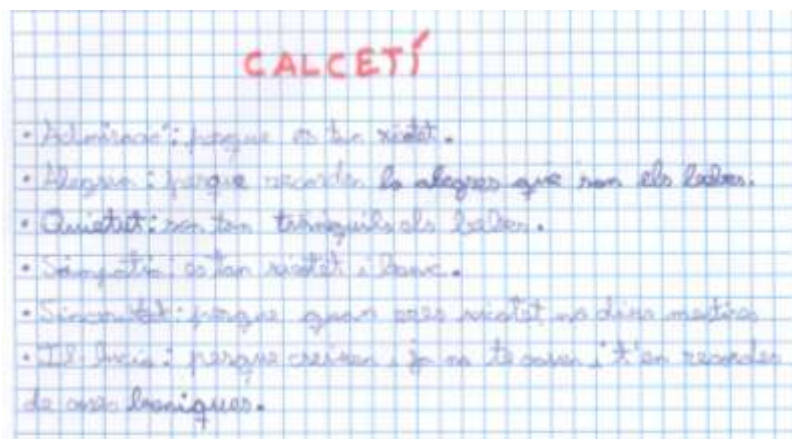 CALCETÍ
• Admiració: perque es tan xicotet.
• Alegria: perque recorden lo alegres que son els bebes.
• Quietut: son tan tranquils els bebes.
• Simpatia: es tan xicotet i bonic.
• Sinceritat: perque quan eres xicotet no dius mentires
• perque creixen i ja no te caven i t'en recordes
de coses boniques.